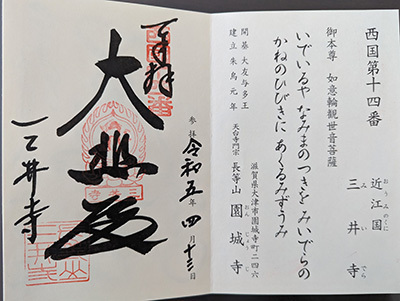 西国第十四番
近江国
おうみのくに
三井寺
みいでら
御本尊 如意輪観世音菩薩
いでいるや なみまのつきを みいでらの
かねのひびきに あくるみずうみ
開基 大友与多王
建立 朱鳥元年
滋賀県大津市園城寺町二四六
天台寺門宗 長等山 園城寺
おんじょうじ
参拝 令和五年四月十三日
奉拝
大悲殿
三井寺